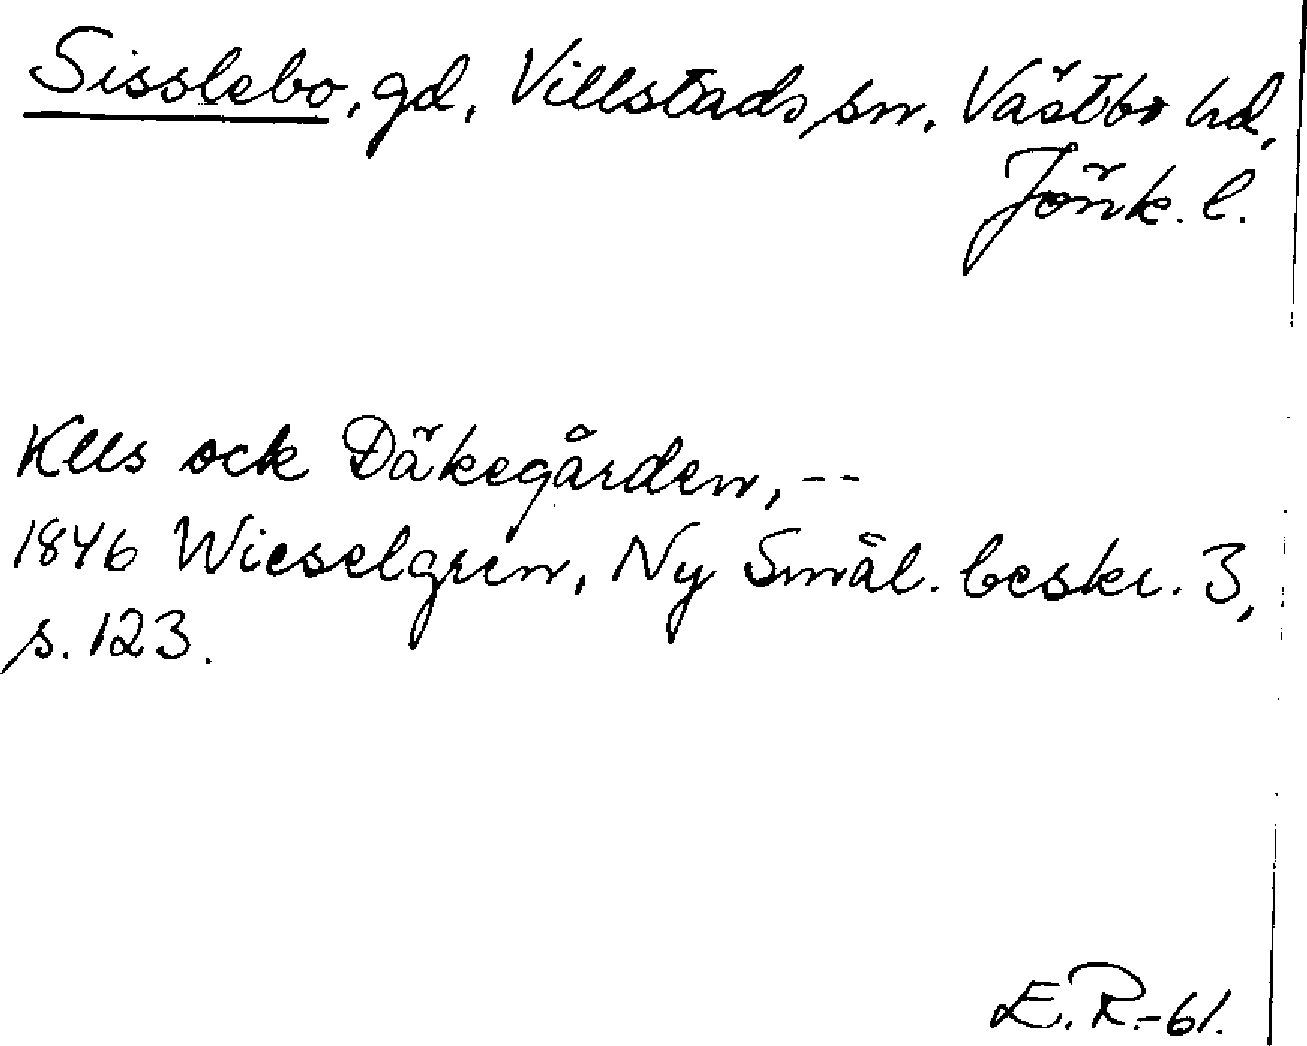 Sisslebo, gd, Villstads sn, Västbo hd,
Jönk. l.
Klls ock Däkegården, --
1846 Wieselgren, Ny Smål. beskr. 3,
s. 123.
E. R. -61.